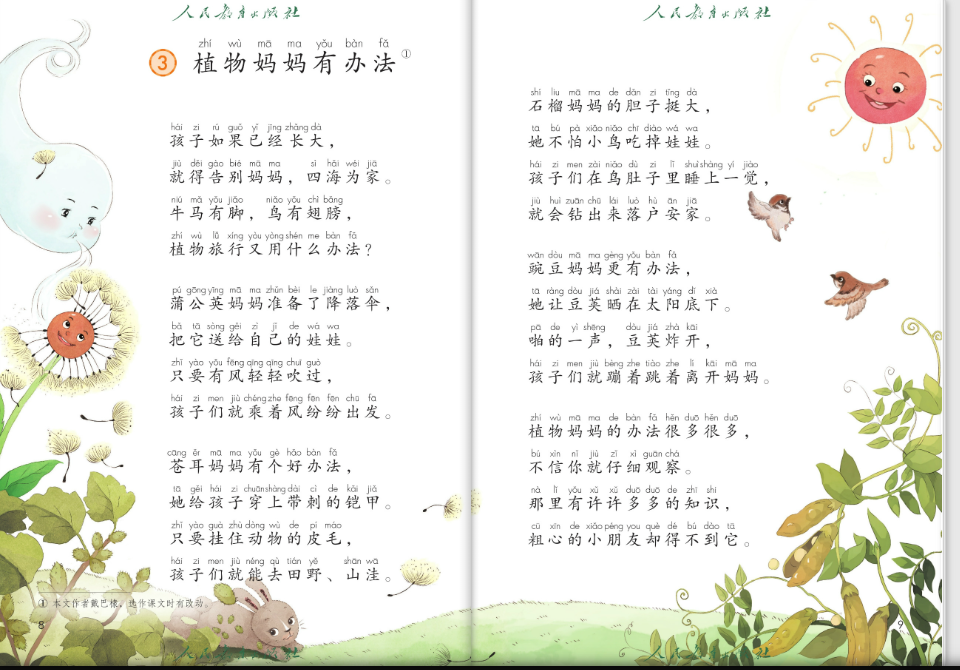 人民教育出版社
人民教育出版社
3
zhí wù mā ma yǒu bàn fǎ
植物妈妈有办法①
hái zi rú guǒ yǐ jīng zhǎng dà
孩子如果已经长大，
jiù děi gào bié mā ma sì hǎi wéi jiā
就得告别妈妈，四海为家。
niú mǎ yǒu jiǎo niǎo yǒu chì bǎng
牛马有脚，鸟有翅膀，
zhí wù lǚ xíng yòu yòng shén me bàn fǎ
植物旅行又用什么办法？
pú gōng yīng mā ma zhǔn bèi le jiàng luò sǎn
蒲公英妈妈准备了降落伞，
bǎ tā sòng gěi zì jǐ de wá wa
把它送给自己的娃娃。
zhǐ yào yǒu fēng qīng qīng chuī guò
只要有风轻轻吹过，
hái zi men jiù chéng zhe fēng fēn fēn chū fā
孩子们就乘着风纷纷出发。
cāng ěr mā ma yǒu gè hǎo bàn fǎ
苍耳妈妈有个好办法，
tā gěi hái zi chuān shàng dài cì de kǎi jiǎ
她给孩子穿上带刺的铠甲。
zhǐ yào guà zhù dòng wù de pí máo
只要挂住动物的皮毛，
hái zi men jiù néng qù tián yě shān wā
孩子们就能去田野、山洼。
① 本文作者戴巴棣，选作课文时有改动。
8
shí liu mā ma de dǎn zi tǐng dà
石榴妈妈的胆子挺大，
tā bú pà xiǎo niǎo chī diào wá wa
她不怕小鸟吃掉娃娃。
hái zi men zài niǎo dù zi lǐ shuì shàng yí jiào
孩子们在鸟肚子里睡上一觉，
jiù huì zuān chū lái luò hù ān jiā
就会钻出来落户安家。
wān dòu mā ma gèng yǒu bàn fǎ
豌豆妈妈更有办法，
tā ràng dòu jiá shài zài tài yáng dǐ xià
她让豆荚晒在太阳底下。
pā de yì shēng dòu jiá zhà kāi
啪的一声，豆荚炸开，
hái zi men jiù bèng zhe tiào zhe lí kāi mā ma
孩子们就蹦着跳着离开妈妈。
zhí wù mā ma de bàn fǎ hěn duō hěn duō
植物妈妈的办法很多很多，
bú xìn nǐ jiù zǐ xì guān chá
不信你就仔细观察。
nà lǐ yǒu xǔ xǔ duō duō de zhī shi
那里有许许多多的知识，
cū xīn de xiǎo péng yǒu què dé bú dào tā
粗心的小朋友却得不到它。
9
人民教育出版社
人民教育出版社